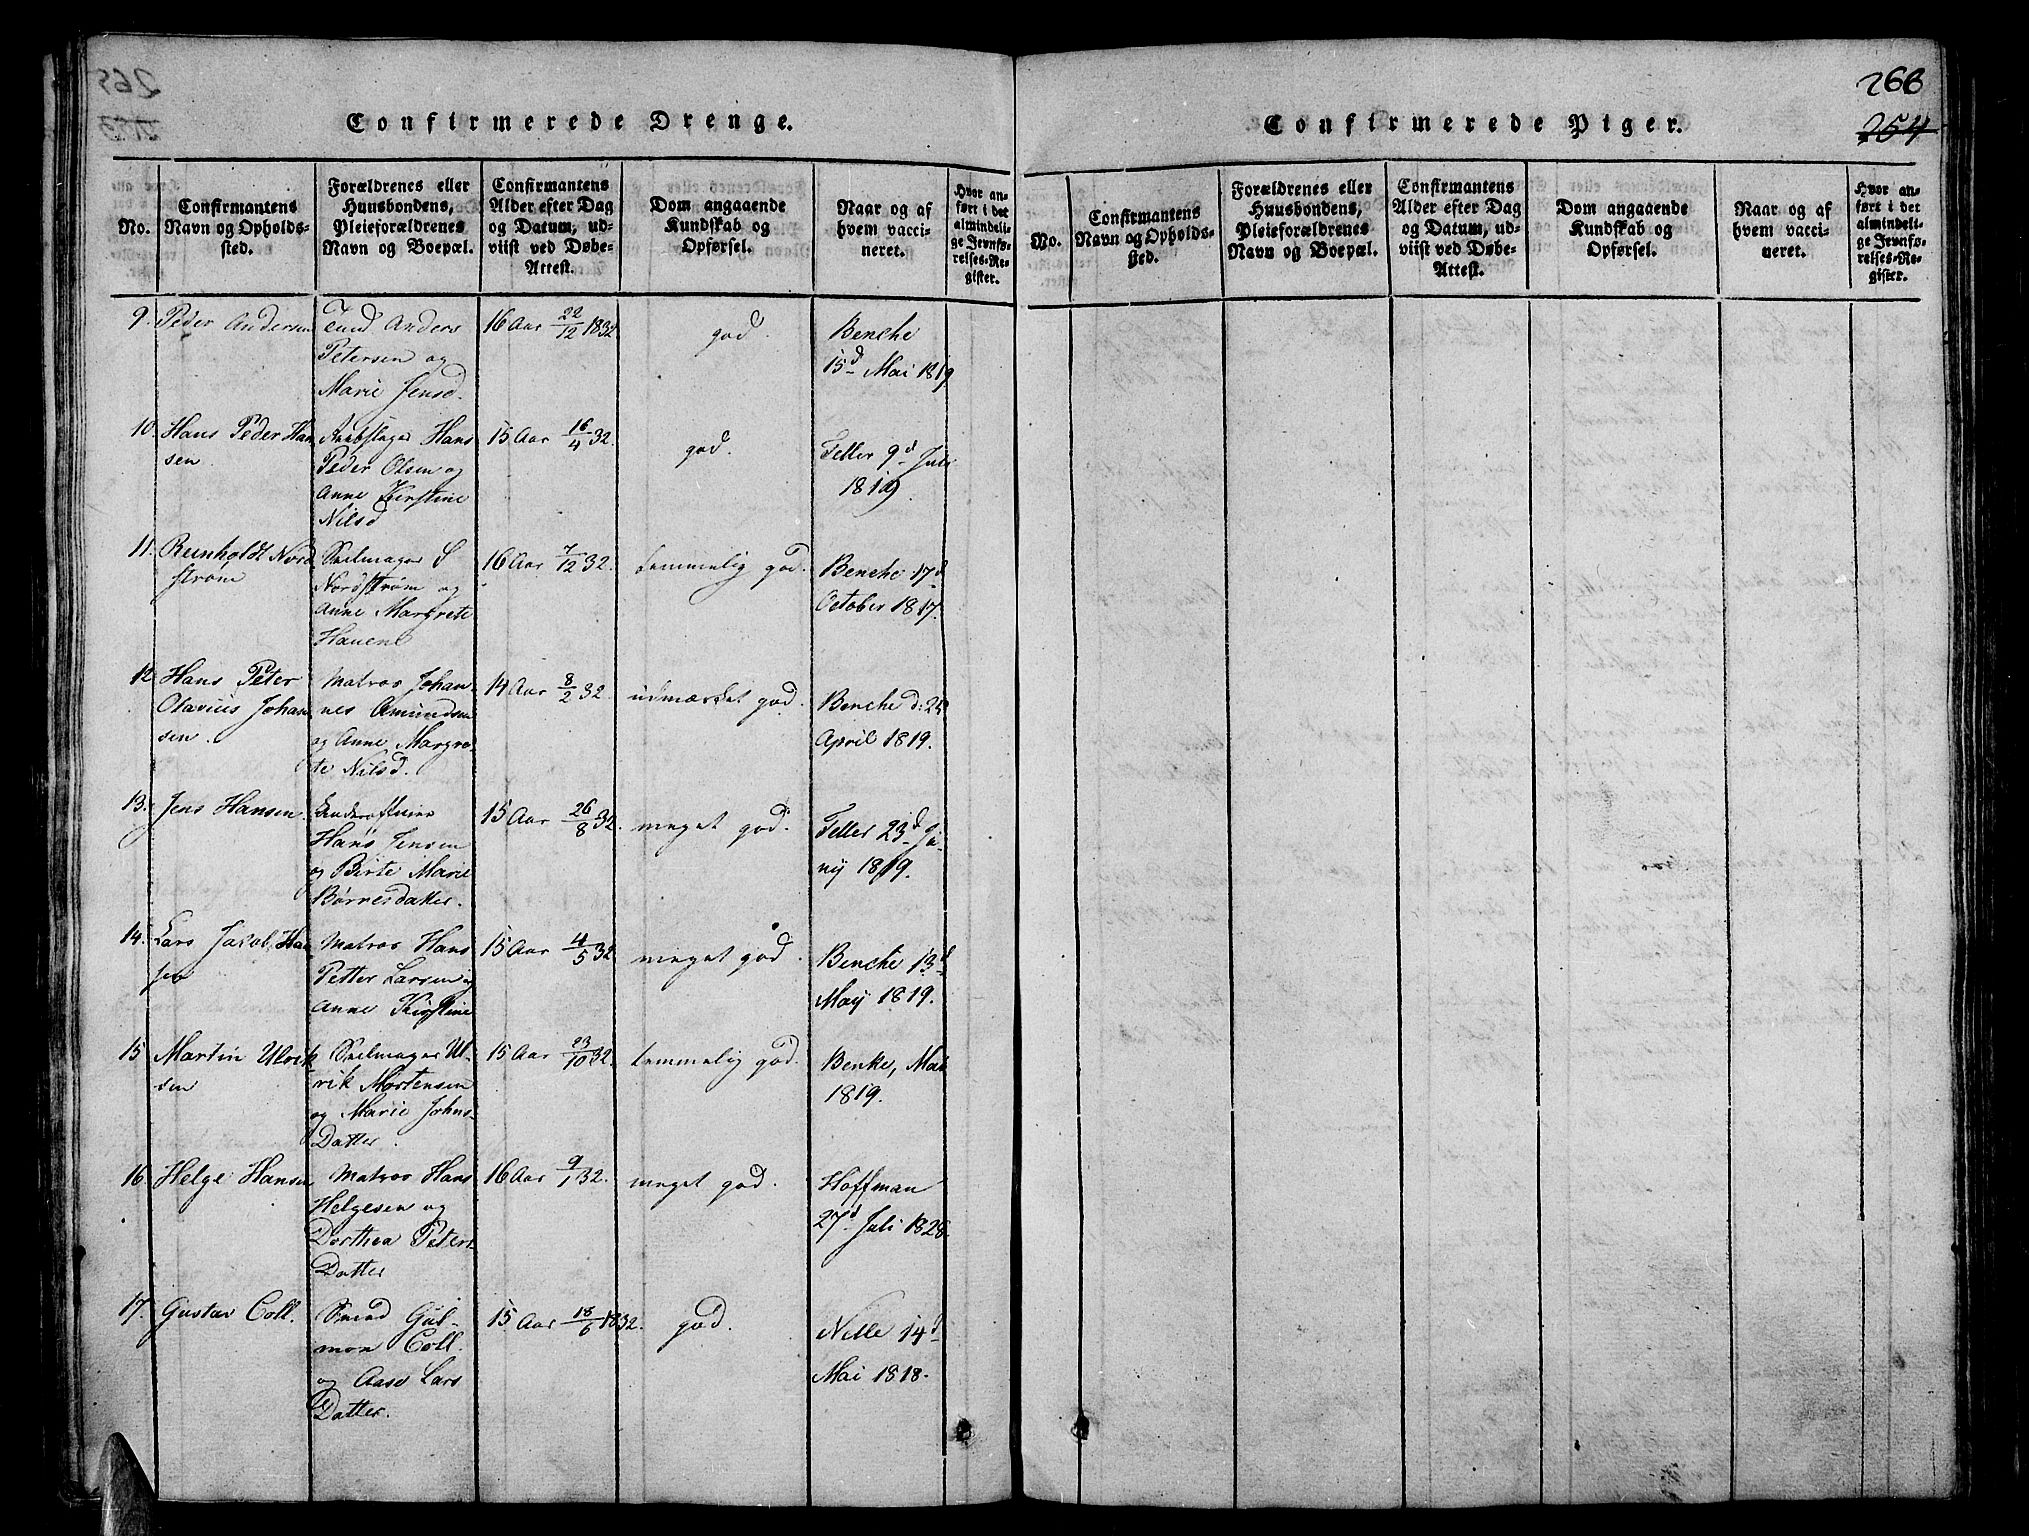 Confirmerede Drenge.
No.
Confirmantens
Navn og Opholds-
sted.
Forældrenes eller
Huusbondens,
Pleieforældrenes
Navn og Boepæl.
Confirmantens
Alder efter Dag
og Datum, ud-
viist ved Døbe-
Attest.
Dom angaaende
Kundskab og
Opførsel.
Naar og af
hvem vacci-
neret.
Hvor an-
ført i det
almindeli-
ge Jevnfø-
relses-Re-
gister.
9. Peder Andersen
Anders
Petersen og
Marie Jensd.
16 Aar 22/12 1832.
god.
Benche
15d Mai 1819
10. Hans Peder Han
sen
Hans
Peder Olsen og
Anne Kirstine
Nilsd
15 Aar 16/4 32.
god.
Feller 9d Juli
1819.
11. Reinholdt Nord
strøm
Seilmager S
Nordstrøm og
Anne Margrete
16 Aar 7/12 32.
temmelig god.
Benche 17d
October 1817.
12 Hans Peter
Olavius Johan
sen.
Matros Johan-
nes Amundsen
og Anne Margre-
te Nilsd.
14 Aar 8/2 32.
udmærket god.
Benche d: 25
April 1819.
13. Jens Hansen.
Underofficier
Hans Jensen
og Birte Marie
Børnesdatter.
15 Aar 26/8 32.
meget god.
Feller 23d Ju-
nij 1819.
14. Lars Jacob Han
sen
Matros Hans
Petter Larsen og
Anne Kirstine
15 Aar 4/5 32
meget god.
Benche 13d
May 1819.
15 Martin Ulrik
sen
Seilmager Ul-
rik Mortensen
og Marie Johns-
Datter.
15 Aar 23/10 32.
temmelig god.
Benke, Mai
1819.
16 Helge Hansen
Matros Hans
Helgesen og
Dorthea Peters
Datter
16 Aar 9/1 32.
meget god.
Hoffman
27d Juli 1828.
17. Gustav Coll.
Smed Gul-
mon Coll.
og Aase Lars
Datter.
15 Aar 18/6 1832.
god.
Nille 14d
Mai 1818.
266
254
Confirmerede Piger.
No.
Confirmantens
Navn og Opholds-
sted.
Forældrenes eller
Huusbondens,
Pleieforældrenes
Navn og Boepæl.
Confirmantens
Alder efter Dag
og Datum, ud-
viist ved Døbe-
Attest.
Dom angaaende
Kundskab og
Opførsel.
Naar og af
hvem vacci-
neret.
Hvor an-
ført i det
almindeli-
ge Jevnfø-
relses-Re-
gister.